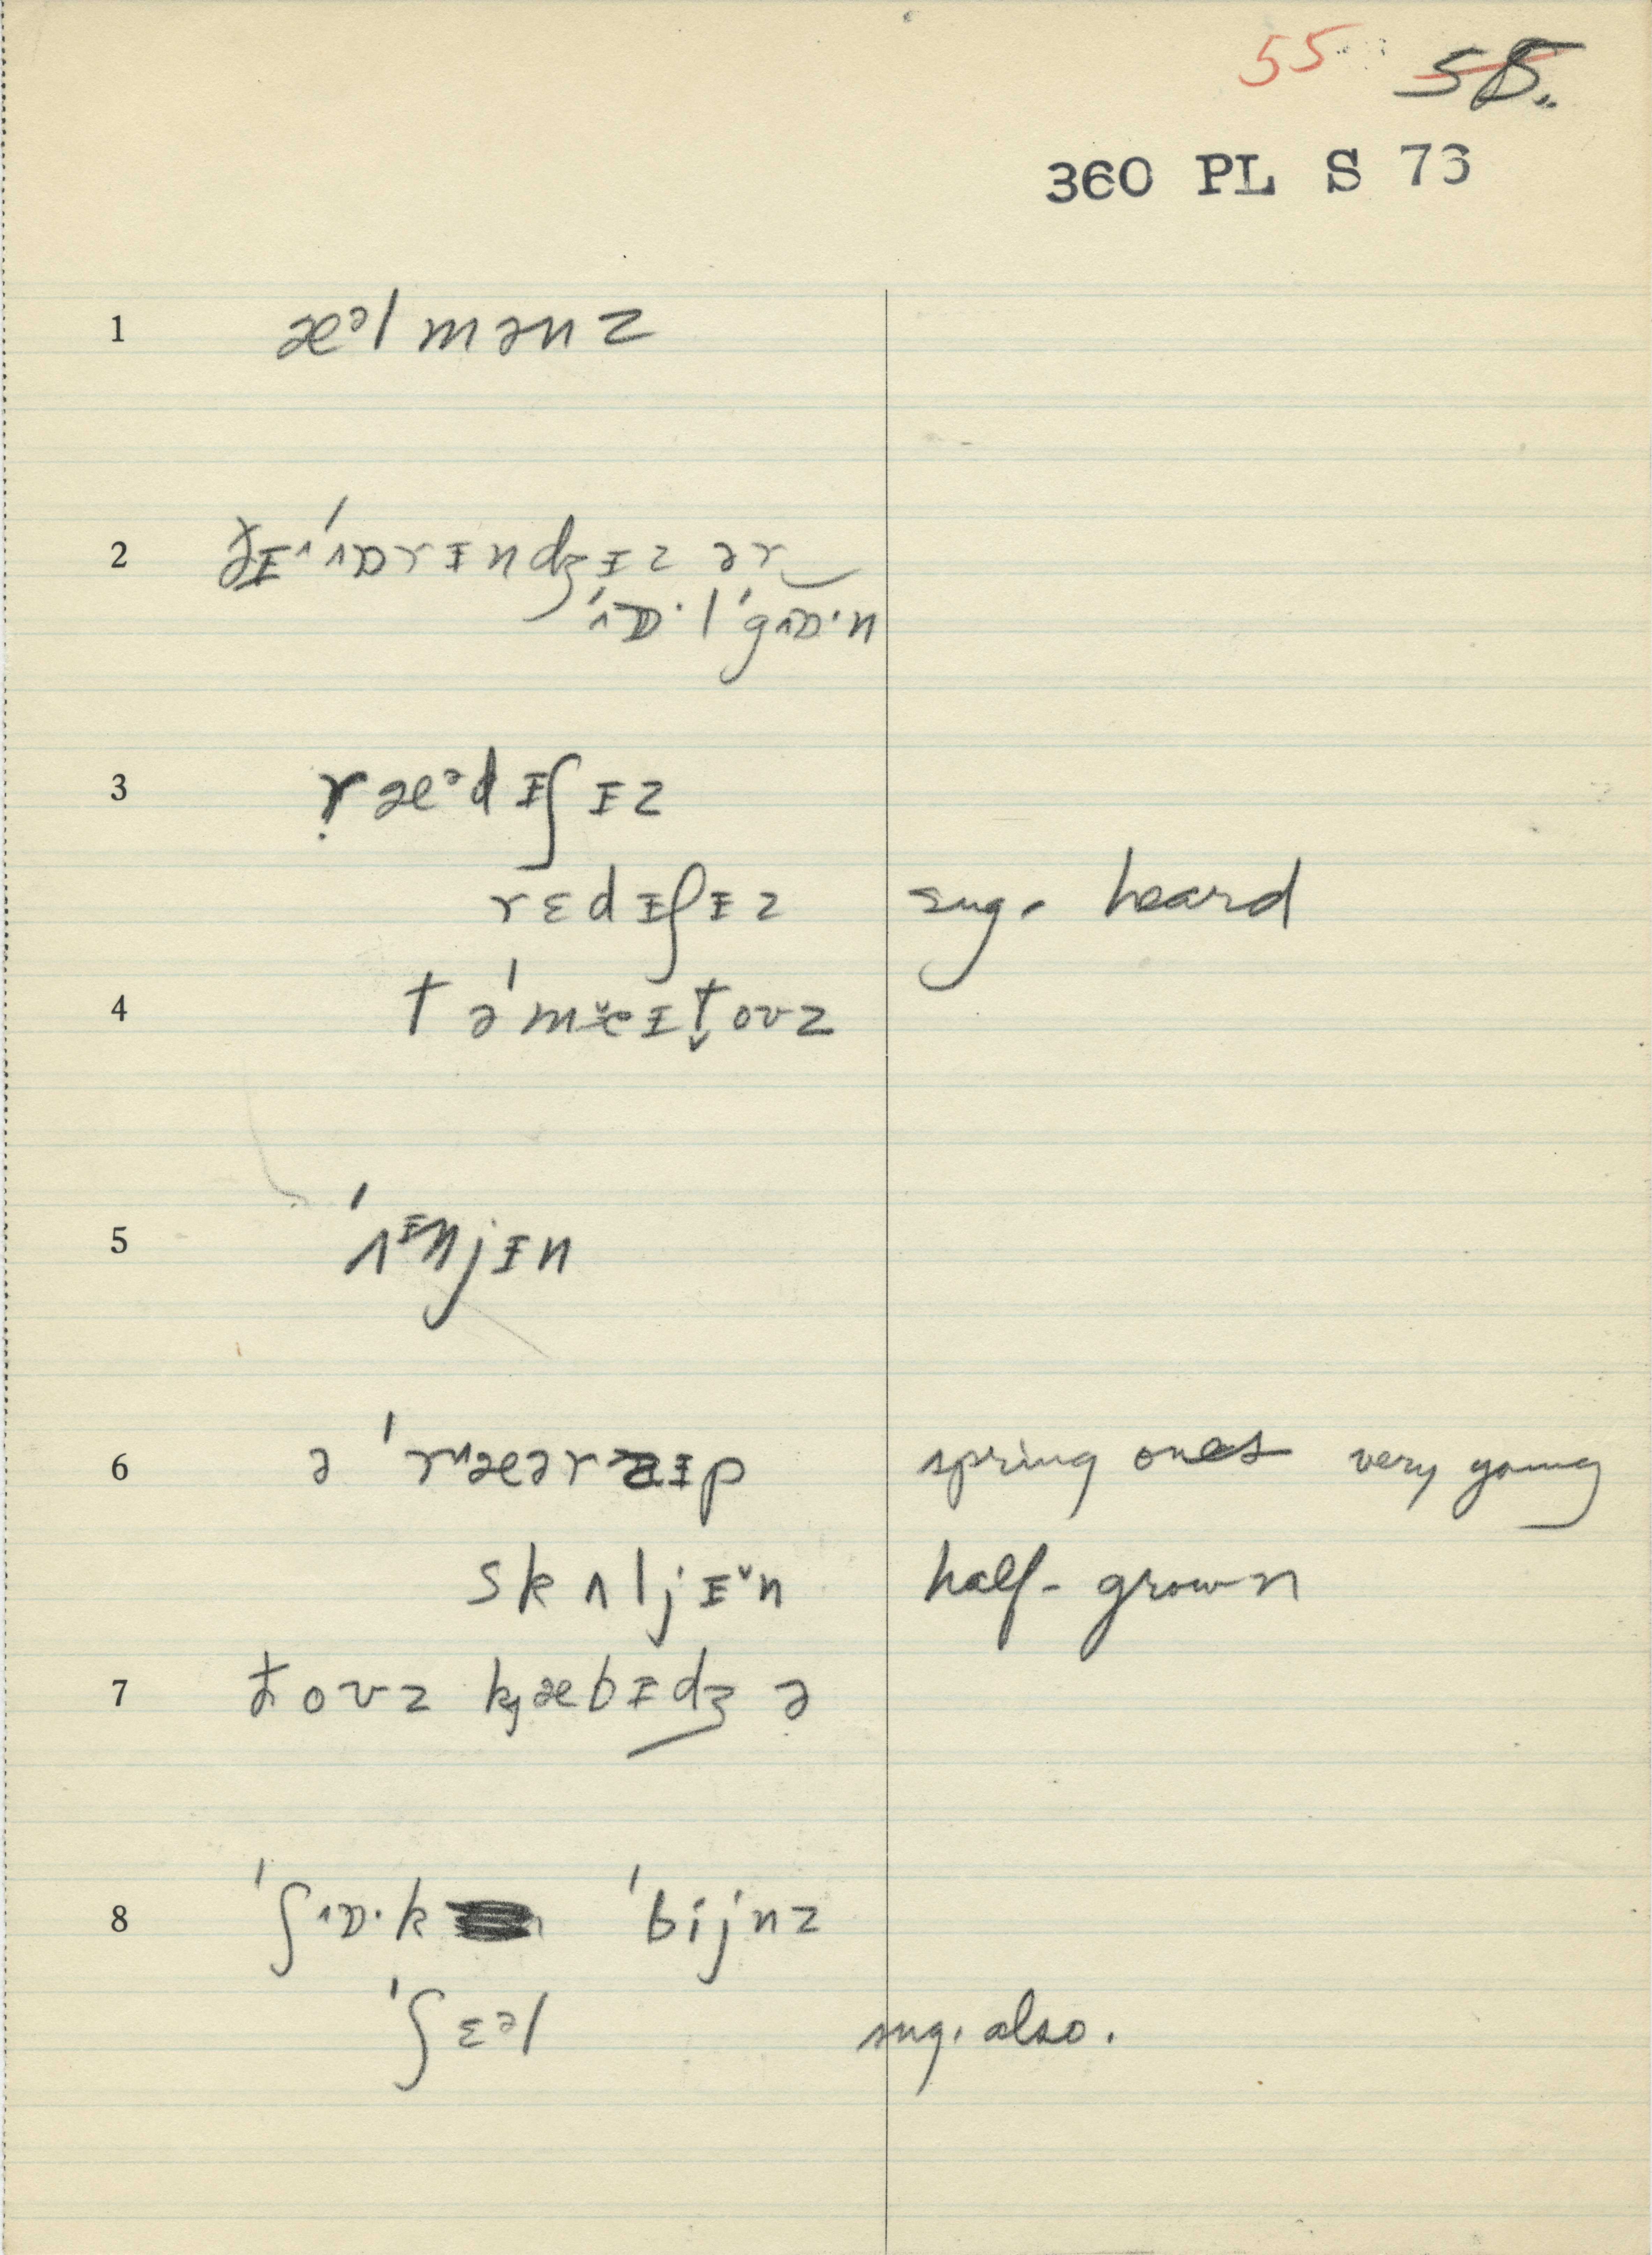 55 58.
360 PL S 73
1 æᵊl mənz
2 ðɪ ˈʌɒrɪndʒɪz ər‿
ˈʌɒ·lˈgʌɒ·n
3 ṛæᵊdɪʃɪz
rɛdɪʃɪz sug. heard
4 təˈmĕɪt̬oʊz
5 ˈʌᶦnjɪn
6 ə ˈrᴧæərzɪp spring ones very young
skʌljɪ˅n half-grown
7 ðoʊz kjæbɪdʒ ə
8 ˈʃʌɒ·k ˈbijnz
ˈʃɛᵊl sug. also.